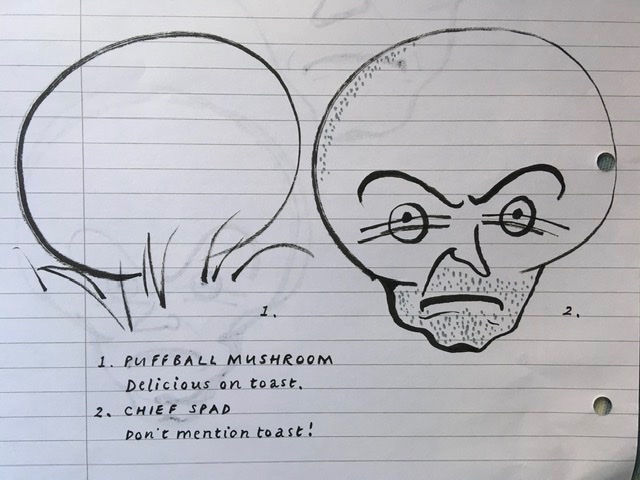 1.
2.
1. PUFFBALL MUSHROOM
Delicious on toast.
2. CHIEF SPAD
Don't mention toast!